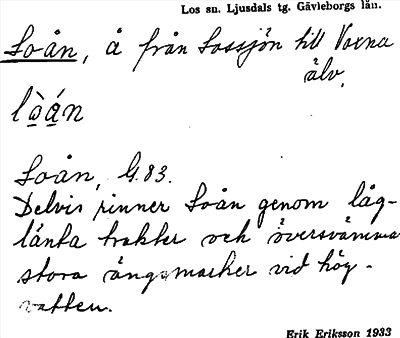 Los sn. Ljusdals tg. Gävleborgs län.
Loån, å från Lossjön till Voxna
älv.
lòán
Loån, G. 83.
Delvis rinner Loån genom låg-
länta trakter och översvämma
stora ängsmarker vid hög-
vatten.
Erik Eriksson 1933